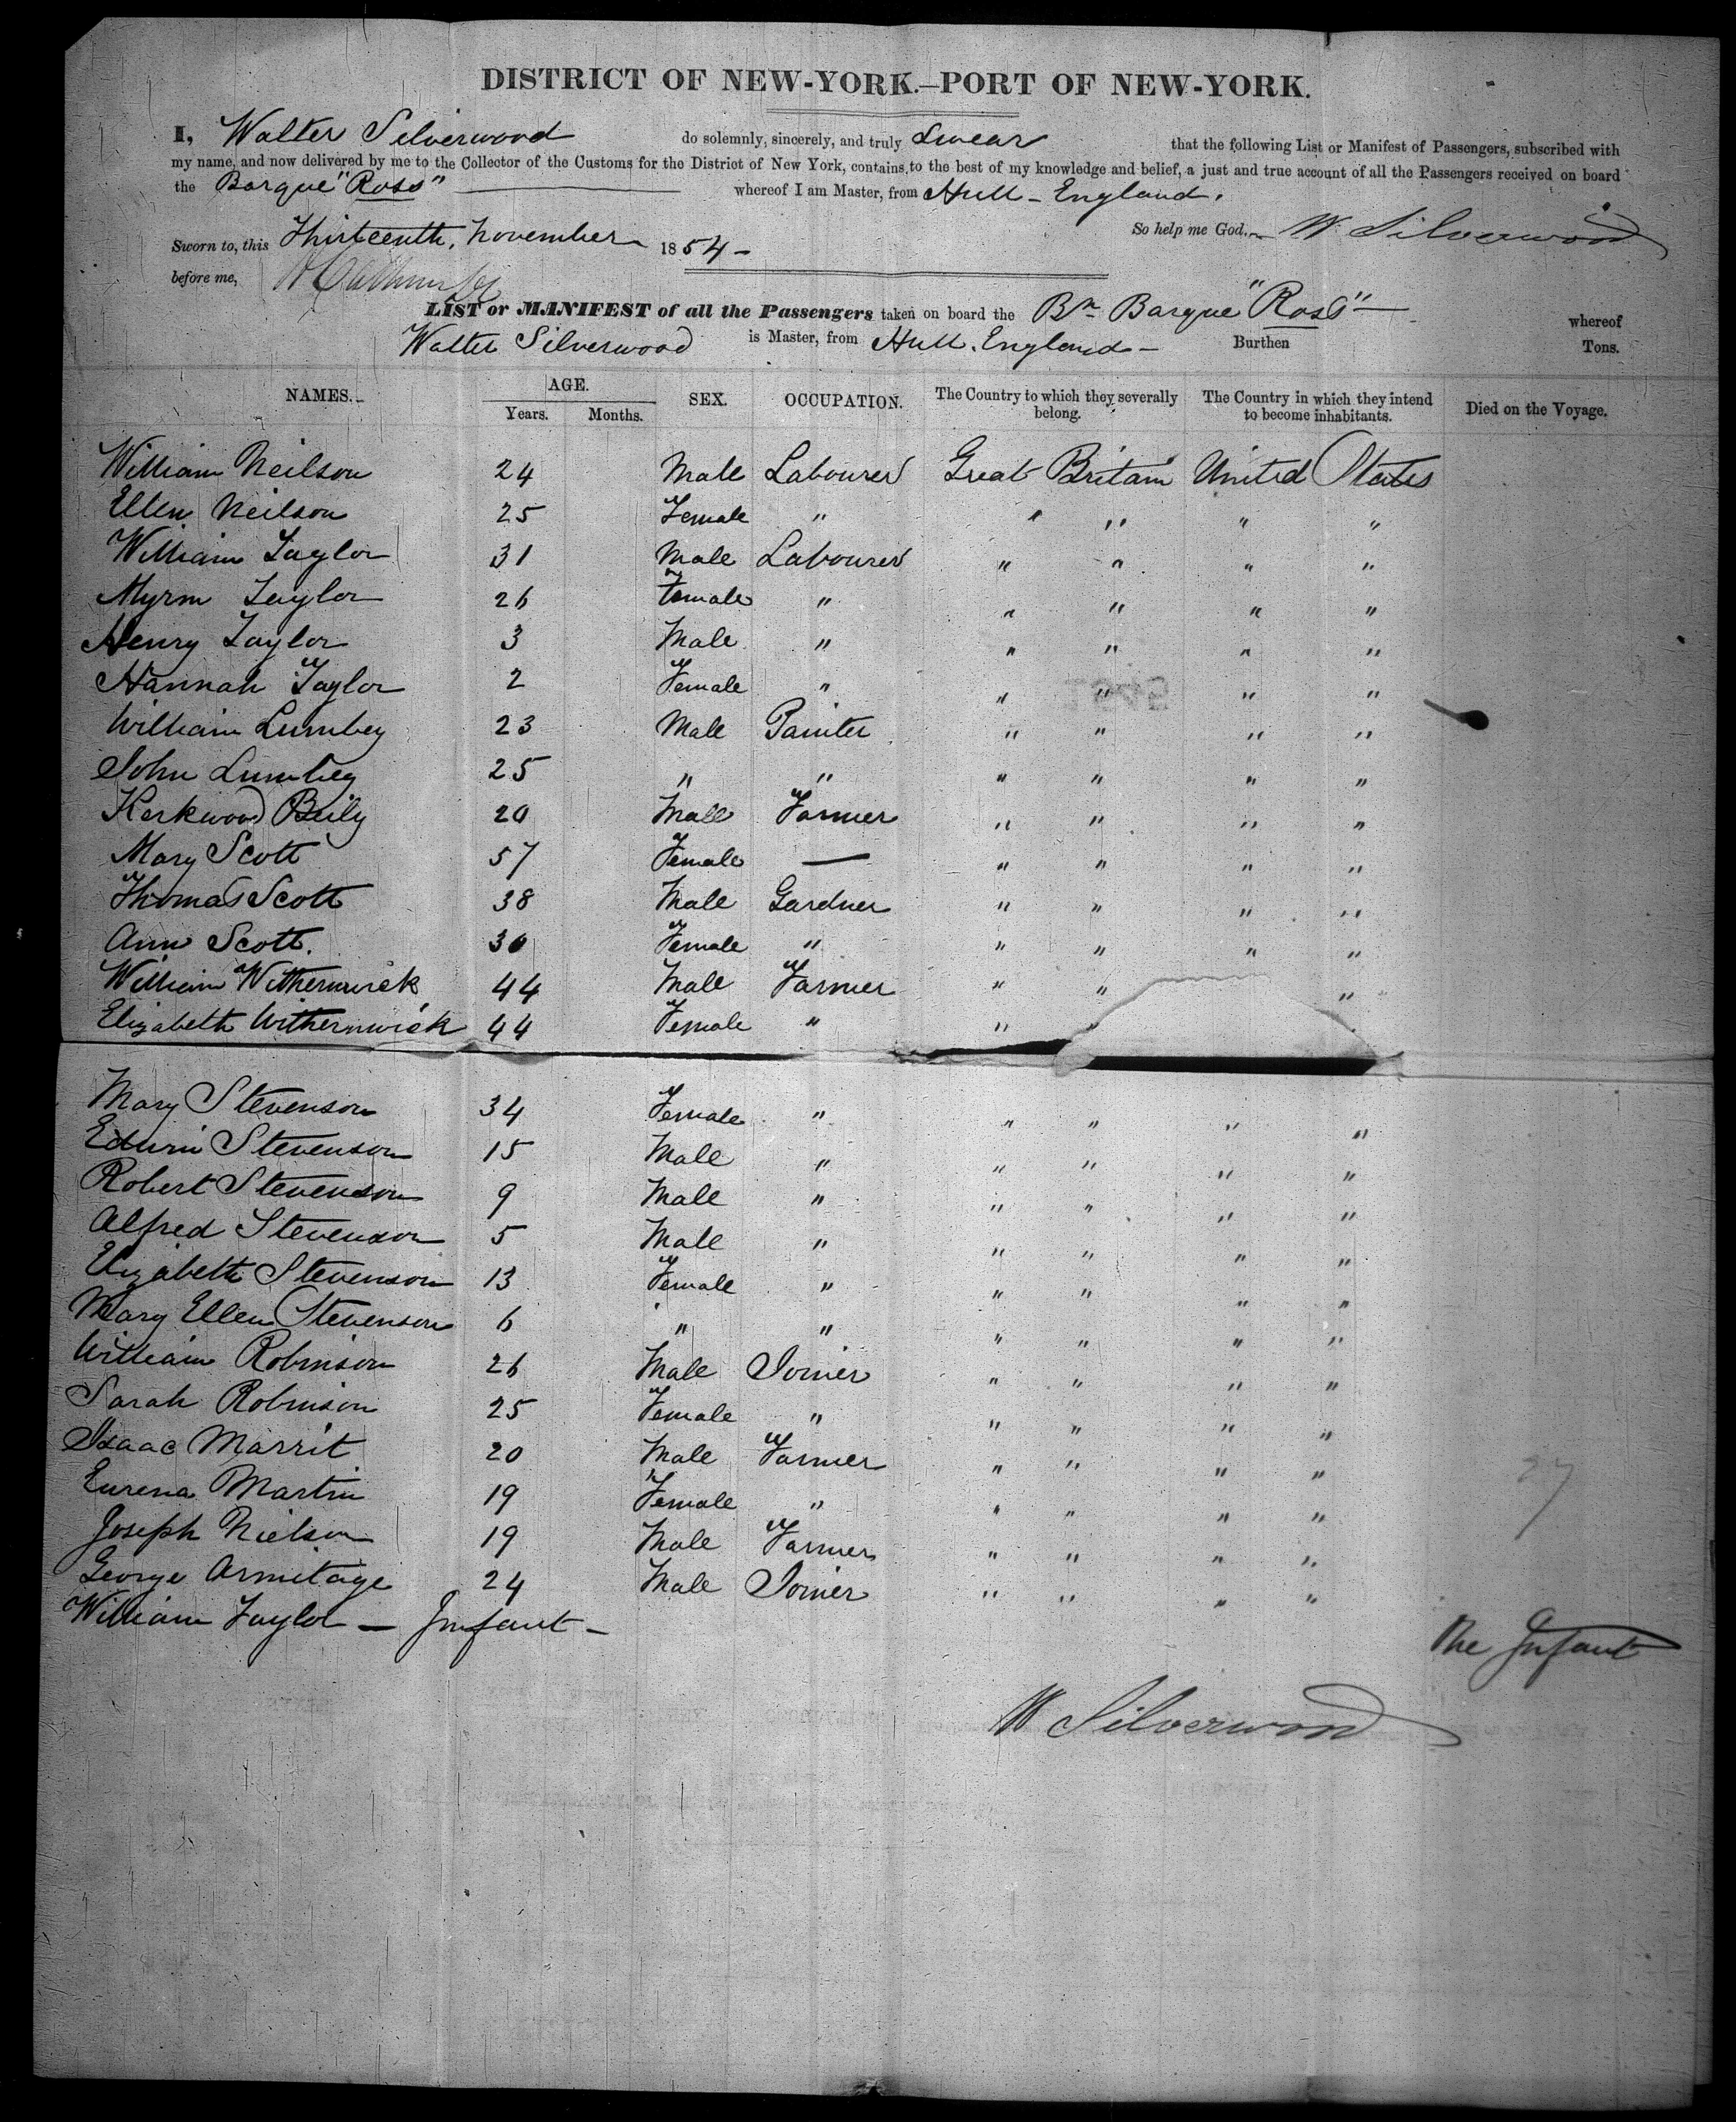 DISTRICT OF NEW-YORK.—PORT OF NEW-YORK.
I, Walter Silverwood do solemnly, sincerely, and truly Swear that the following List or Manifest of Passengers, subscribed with
my name, and now delivered by me to the Collector of the Customs for the District of New York, contains, to the best of my knowledge and belief, a just and true account of all the Passengers received on board
the Barque "Ross" whereof I am Master, from Hull - England.
So help me God. W Silverwood
Sworn to, this Thirteenth, November 1854 -
before me,
LIST or MANIFEST of all the Passengers taken on board the Br Barque "Ross" whereof
Walter Silverwood is Master, from Hull. England - Burthen Tons.
NAMES. AGE. Years. Months. SEX. OCCUPATION. The Country to which they severally belong. The Country in which they intend to become inhabitants. Died on the Voyage.
William Neilson 24 Male Labourer Great Britain United States
Ellen Neilson 25 Female " " " " "
William Taylor 31 Male Labourer " " " "
Myrm Taylor 26 Female " " " " "
Henry Taylor 3 Male " " " " "
Hannah Taylor 2 Female " " " " "
William Lumbey 23 Male Painter " " " "
John Lumbey 25 " " " " " "
Kerkwood Beily 20 Male Farmer " " " "
Mary Scott 57 Female — " " " "
Thomas Scott 38 Male Gardner " " " "
Ann Scott. 30 Female " " " " "
William Withernwick 44 Male Farmer " " "
Elizabeth Withernwick 44 Female " " "
Mary Stevenson 34 Female " " " " "
Edwin Stevenson 15 Male " " " " "
Robert Stevenson 9 Male " " " " "
Alfred Stevenson 5 Male " " " " "
Elizabeth Stevenson 13 Female " " " " "
Mary Ellen Stevenson 6 " " " " " "
William Robinson 26 Male Joiner " " " "
Sarah Robinson 25 Female " " " " "
Isaac Marrit 20 Male Farmer " " " "
Eurena Martin 19 Female " " " " "
Joseph Nielson 19 Male Farmer " " " "
George Armitage 24 Male Joiner " " " "
William Taylor — Infant -
27
The Infant
W Silverwood